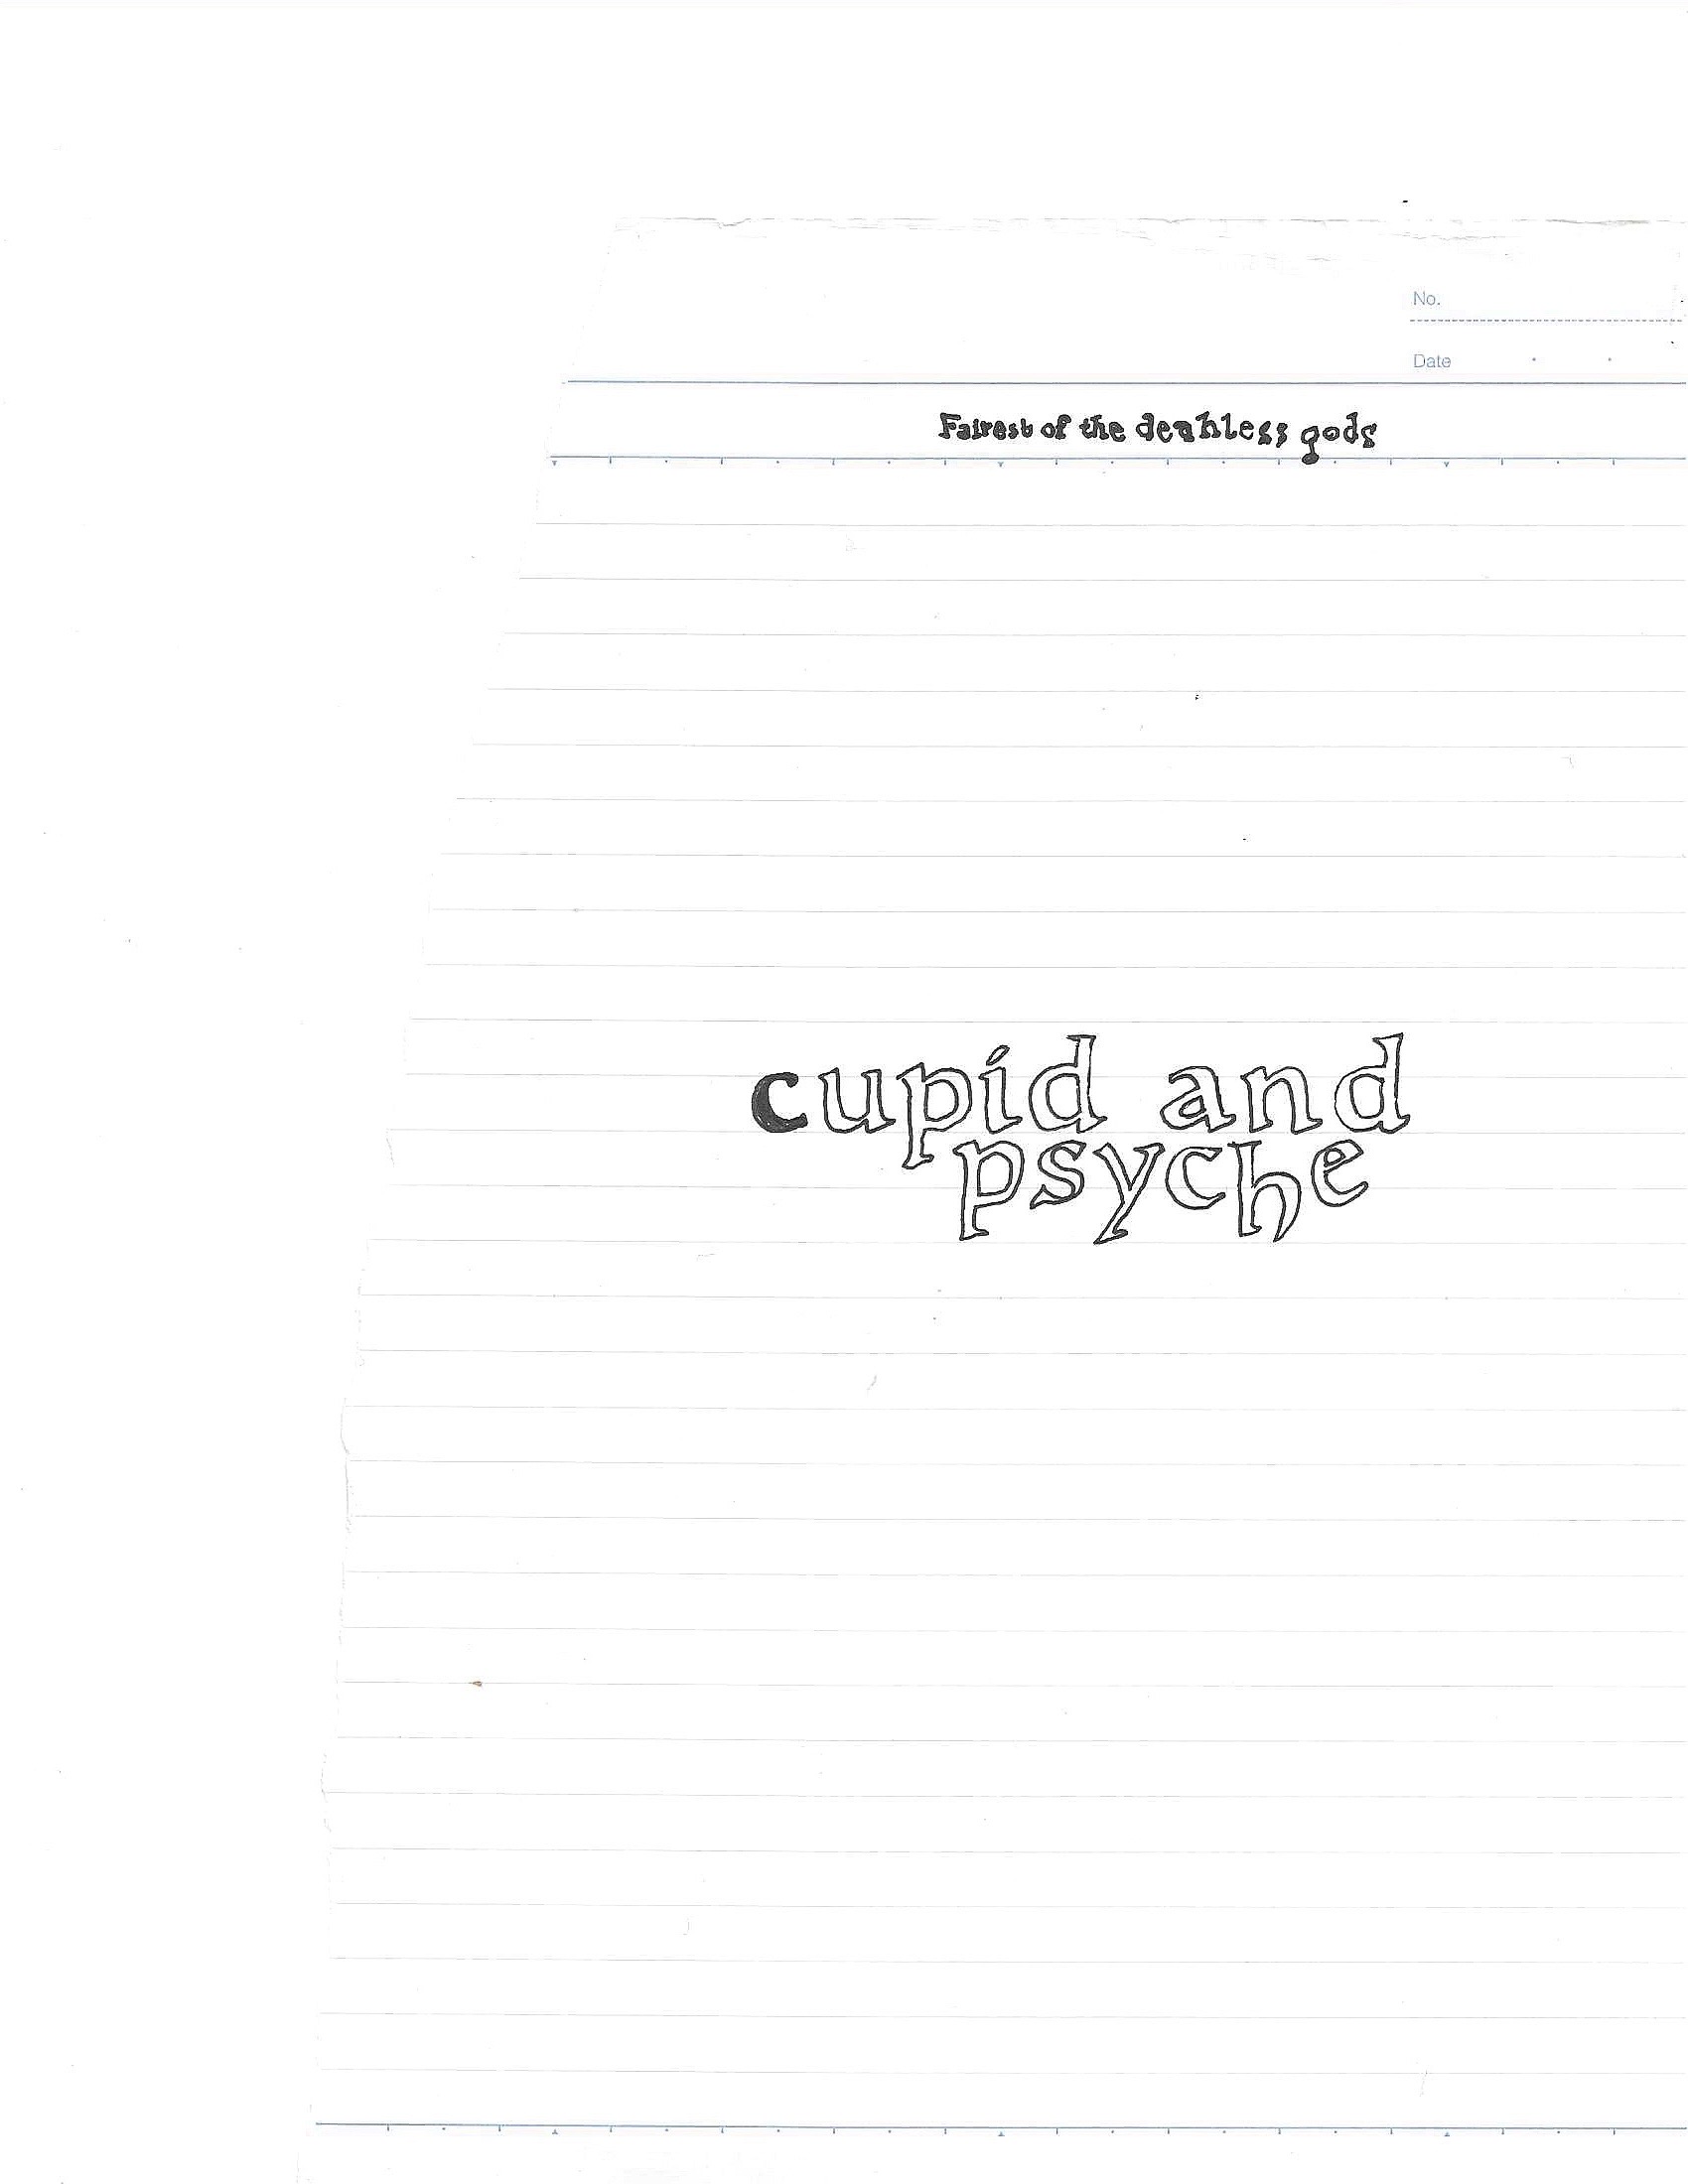 No.
Date
Fairest of the deahless gods
cupid and
psyche